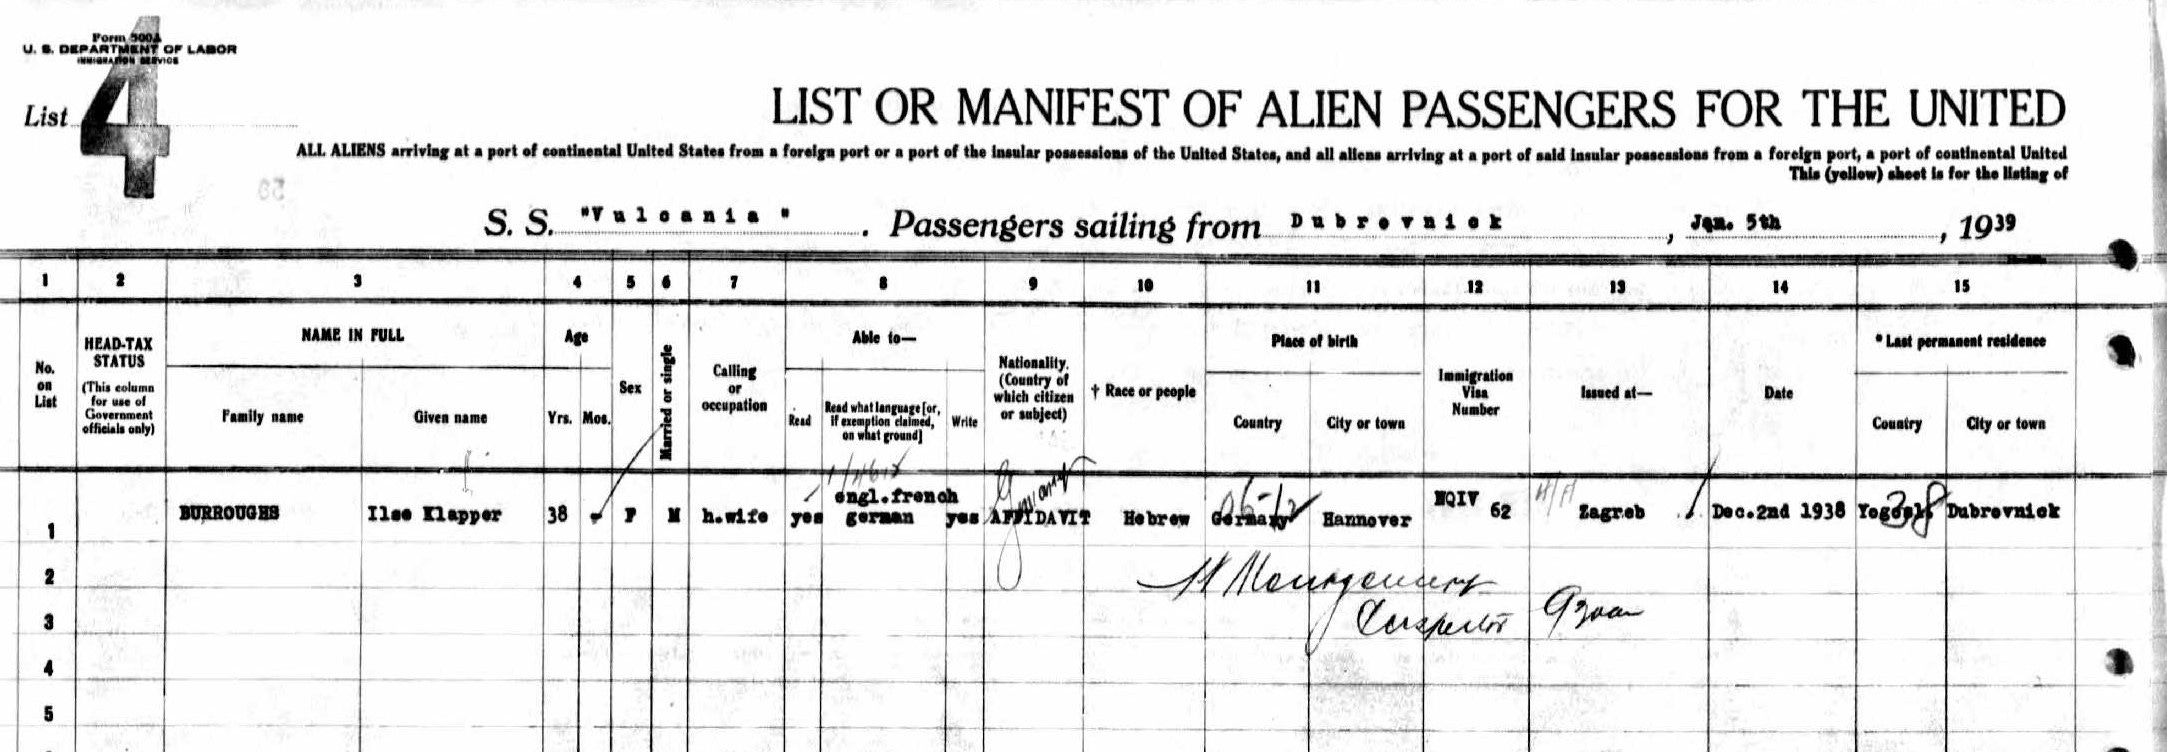 Form 500A
U. S. DEPARTMENT OF LABOR
IMMIGRATION SERVICE
4
List
LIST OR MANIFEST OF ALIEN PASSENGERS FOR THE UNITED
ALL ALIENS arriving at a port of continental United States from a foreign port or a port of the insular possessions of the United States, and all aliens arriving at a port of said insular possessions from a foreign port, a port of continental United
This (yellow) sheet is for the listing of
S. S. "Vulcania". Passengers sailing from Dubrovnick, Jan. 5th, 1939
1 2 3 4 5 6 7 8 9 10 11 12 13 14 15
No. on List
HEAD-TAX STATUS (This column for use of Government officials only)
NAME IN FULL
Family name Given name
Age
Yrs. Mos.
Sex
Married or single
Calling or occupation
Able to—
Read Read what language [or, if exemption claimed, on what ground] Write
Nationality. (Country of which citizen or subject)
† Race or people
Place of birth
Country City or town
Immigration Visa Number
Issued at—
Date
* Last permanent residence
Country City or town
1 BURROUGHS Ilse Klapper 38 - F M h.wife yes engl.french german yes AFFIDAVIT Hebrew Germany Hannover NQIV 62 Zagreb Dec.2nd 1938 Dubrovnick
38
2
H Montgomery
3
Inspector
4
5